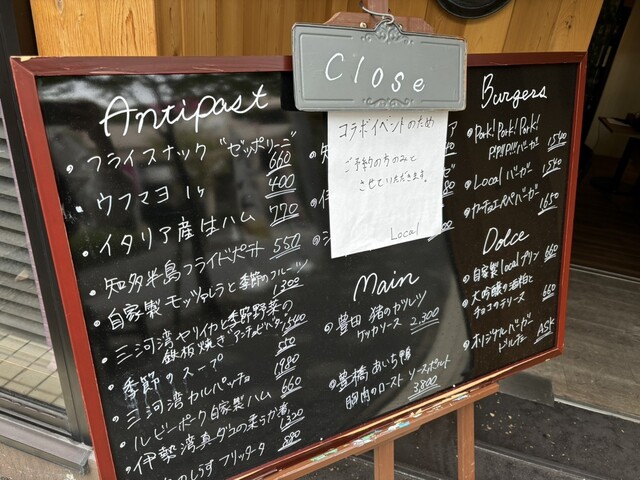 Close
コラボイベントのため
ご予約の方のみと
させていただきます。
Local
Antipast
・フライスナック "ゼッポリーニ"
660
・ウフマヨ 1ヶ
400
・イタリア産生ハム
770
・知多半島フライドポテト
550
・自家製 モッツァレラと季節のフルーツ
1,300
・三河湾ヤリイカと季節野菜の
鉄板焼き アンチョビバター
1540
・季節のスープ
550
・三河湾カルパッチョ
1980
・ルビーポーク自家製ハム
660
・伊勢湾真ダコの柔らか煮
1320
のしらすフリッタータ
880
Main
・豊田 猪のカツレツ
ケッカソース 2,300
・豊橋 あいち鴨
胸肉のロースト ソースポルト
3800
Burgers
・Pork! Pork! Pork!
バーガー 1540
・Local バーガ
1540
バーガー
1650
Dolce
・自家製localプリン
660
・大吟醸の酒粕と
チョコテリーヌ
660
・オリジナルバーガー
ドルチェ ASK